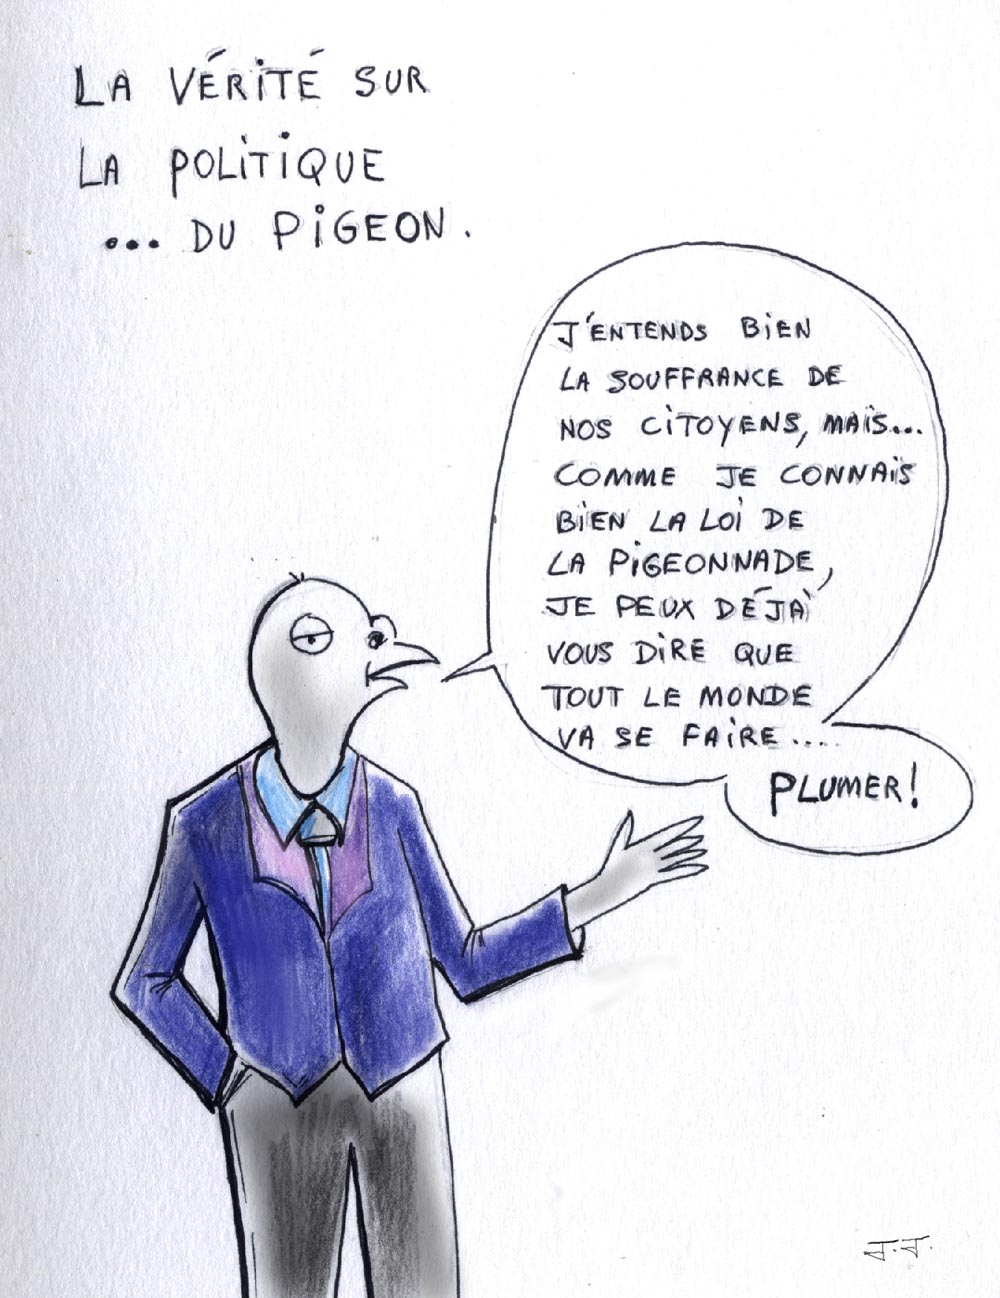 LA VÉRITÉ SUR
LA POLITIQUE
... DU PIGEON.
J'ENTENDS BIEN
LA SOUFFRANCE DE
NOS CITOYENS, MAIS...
COMME JE CONNAIS
BIEN LA LOI DE
LA PIGEONNADE,
JE PEUX DÉJÀ
VOUS DIRE QUE
TOUT LE MONDE
VA SE FAIRE....
PLUMER!
J.J.